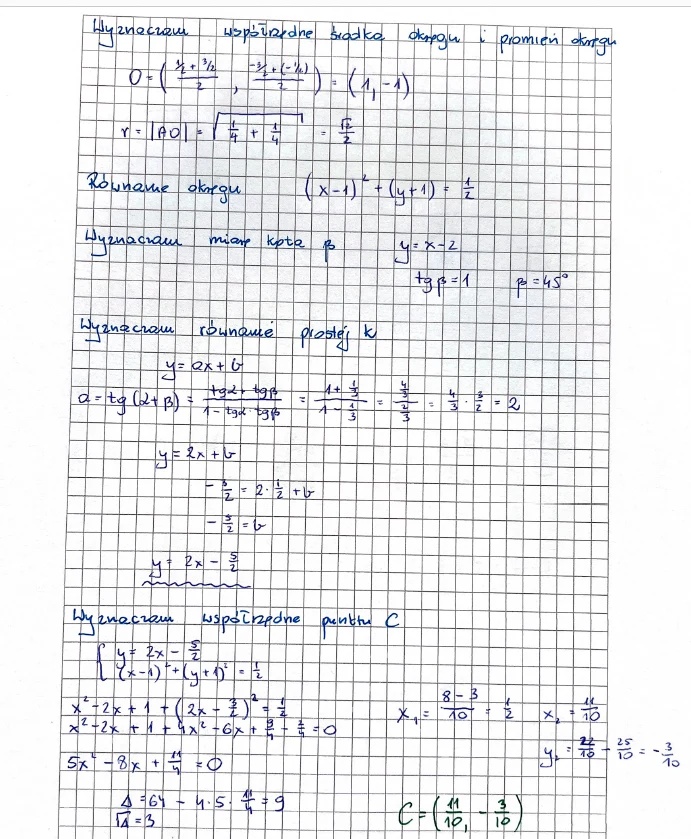 Wyznaczam współrzędne środka okręgu i promień okręgu
O = ( (1/2 + 3/2)/2 , (-3/2 + (-1/2))/2 ) = (1, -1)
r = |AO| = √(1/4 + 1/4) = √2/2
Równanie okręgu (x-1)² + (y+1) = 1/2
Wyznaczam miarę kąta β y = x-2
tg β = 1 β = 45°
Wyznaczam równanie prostej k
y = ax + b
a = tg (α + β) = (tgα + tgβ)/(1 - tgα · tgβ) = (1 + 1/3)/(1 - 1/3) = (4/3)/(2/3) = 4/3 · 3/2 = 2
y = 2x + b
-3/2 = 2 · 1/2 + b
-5/2 = b
y = 2x - 5/2
Wyznaczam współrzędne punktu C
{ y = 2x - 5/2
(x-1)² + (y+1)² = 1/2
x² - 2x + 1 + (2x - 3/2)² = 1/2 x₁ = (8-3)/10 = 1/2 x₂ = 11/10
x² - 2x + 1 + 4x² - 6x + 9/4 - 2/4 = 0
y₂ = 22/10 - 25/10 = -3/10
5x² - 8x + 11/4 = 0
Δ = 64 - 4 · 5 · 11/4 = 9 C = (11/10, -3/10)
√Δ = 3